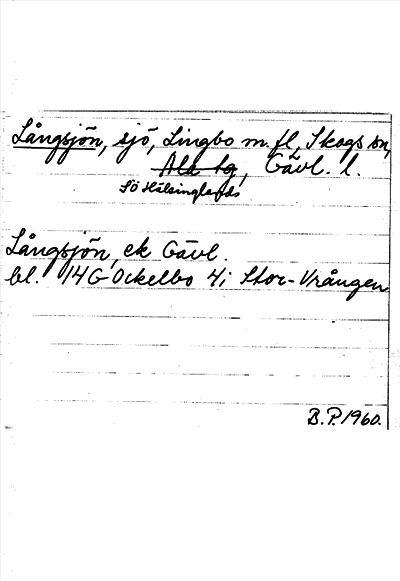 Långsjön, sjö, Lingbo m. fl, Skogs sn,
Ala tg, Gävl. l.
Sö Hälsinglands
Långsjön, ek Gävl.
bl. 14G Ockelbo 4i Stor-Vrången
B.P. 1960.